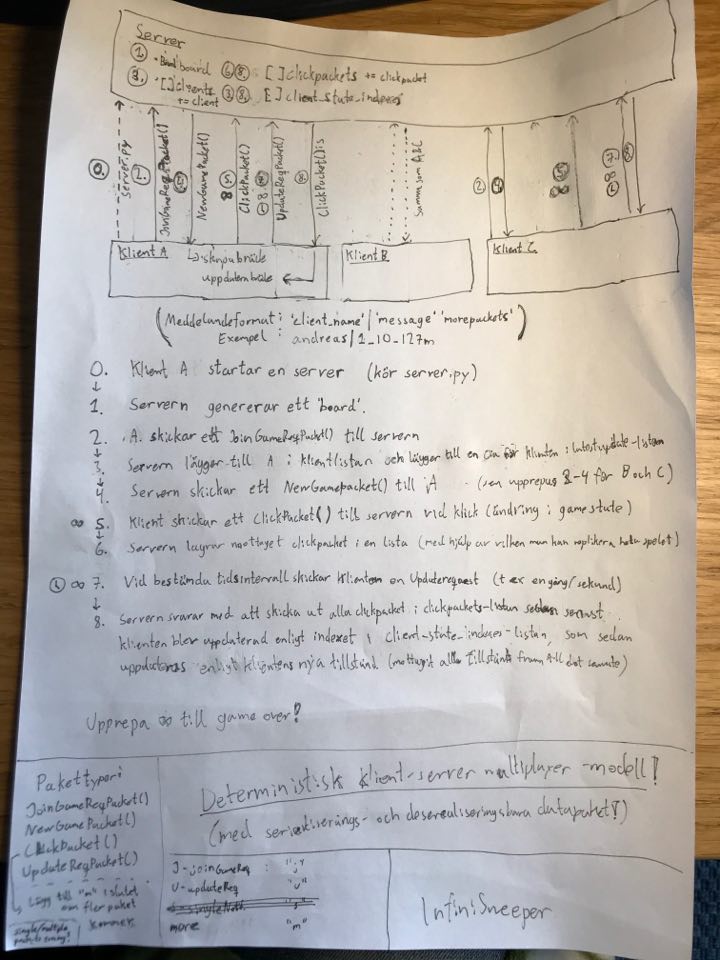 Server
① board ⑥⑧ [ ] clickpackets += clickpacket
③ [ ] clients ③⑧ [ ] client_state_indexes
+= client
⓪
server.py
JoinGameReqPacket()
NewGamePacket()
8 ⑤
ClickPacket()
UpdateReqPacket()
ClickPacket():s
Samma som A&C
②
Klient A
↳ skapa bräde
uppdatera bräde
Klient B
Klient C
(Meddelandeformat: 'client_name' | 'message' 'morepackets')
Exempel : andreas/1_10_127m
0. Klient A startar en server (kör server.py)
1. Servern genererar ett 'board'.
2. A. skickar ett JoinGameReqPacket() till servern
3. Servern lägger till A i klientlistan och lägger till en för klienten i latestupdate-listan
4. Servern skickar ett NewGamepacket() till A (sen upprepas 2-4 för B och C)
∞ 5. Klient skickar ett ClickPacket() till servern vid klick (ändring i gamestate)
6. Servern lagrar mottaget clickpacket i en lista (med hjälp av vilken man kan replikera hela spelet)
∞ 7. Vid bestämda tidsintervall skickar klienten en Updaterequest (t ex en gång/sekund)
8. Servern svarar med att skicka ut alla clickpacket i clickpackets-listan sedan senast
klienten blev uppdaterad enligt indexet i client-state_indexes-listan, som sedan
uppdateras enligt klientens nya tillstånd (mottagit alla tillstånd fram till det senaste)
Upprepa ∞ till game over!
Pakettyper:
JoinGameReqPacket()
NewGamePacket()
ClickPacket()
UpdateReqPacket()
Lägg till "m" i slutet
om fler paket
kommer.
Deterministisk klient-server multiplayer-modell!
(med serialiserings- och deserialiseringsbara datapaket!)
J - joinGameReq : "j"
U - updateReq "u"
more "m"
InfiniSweeper